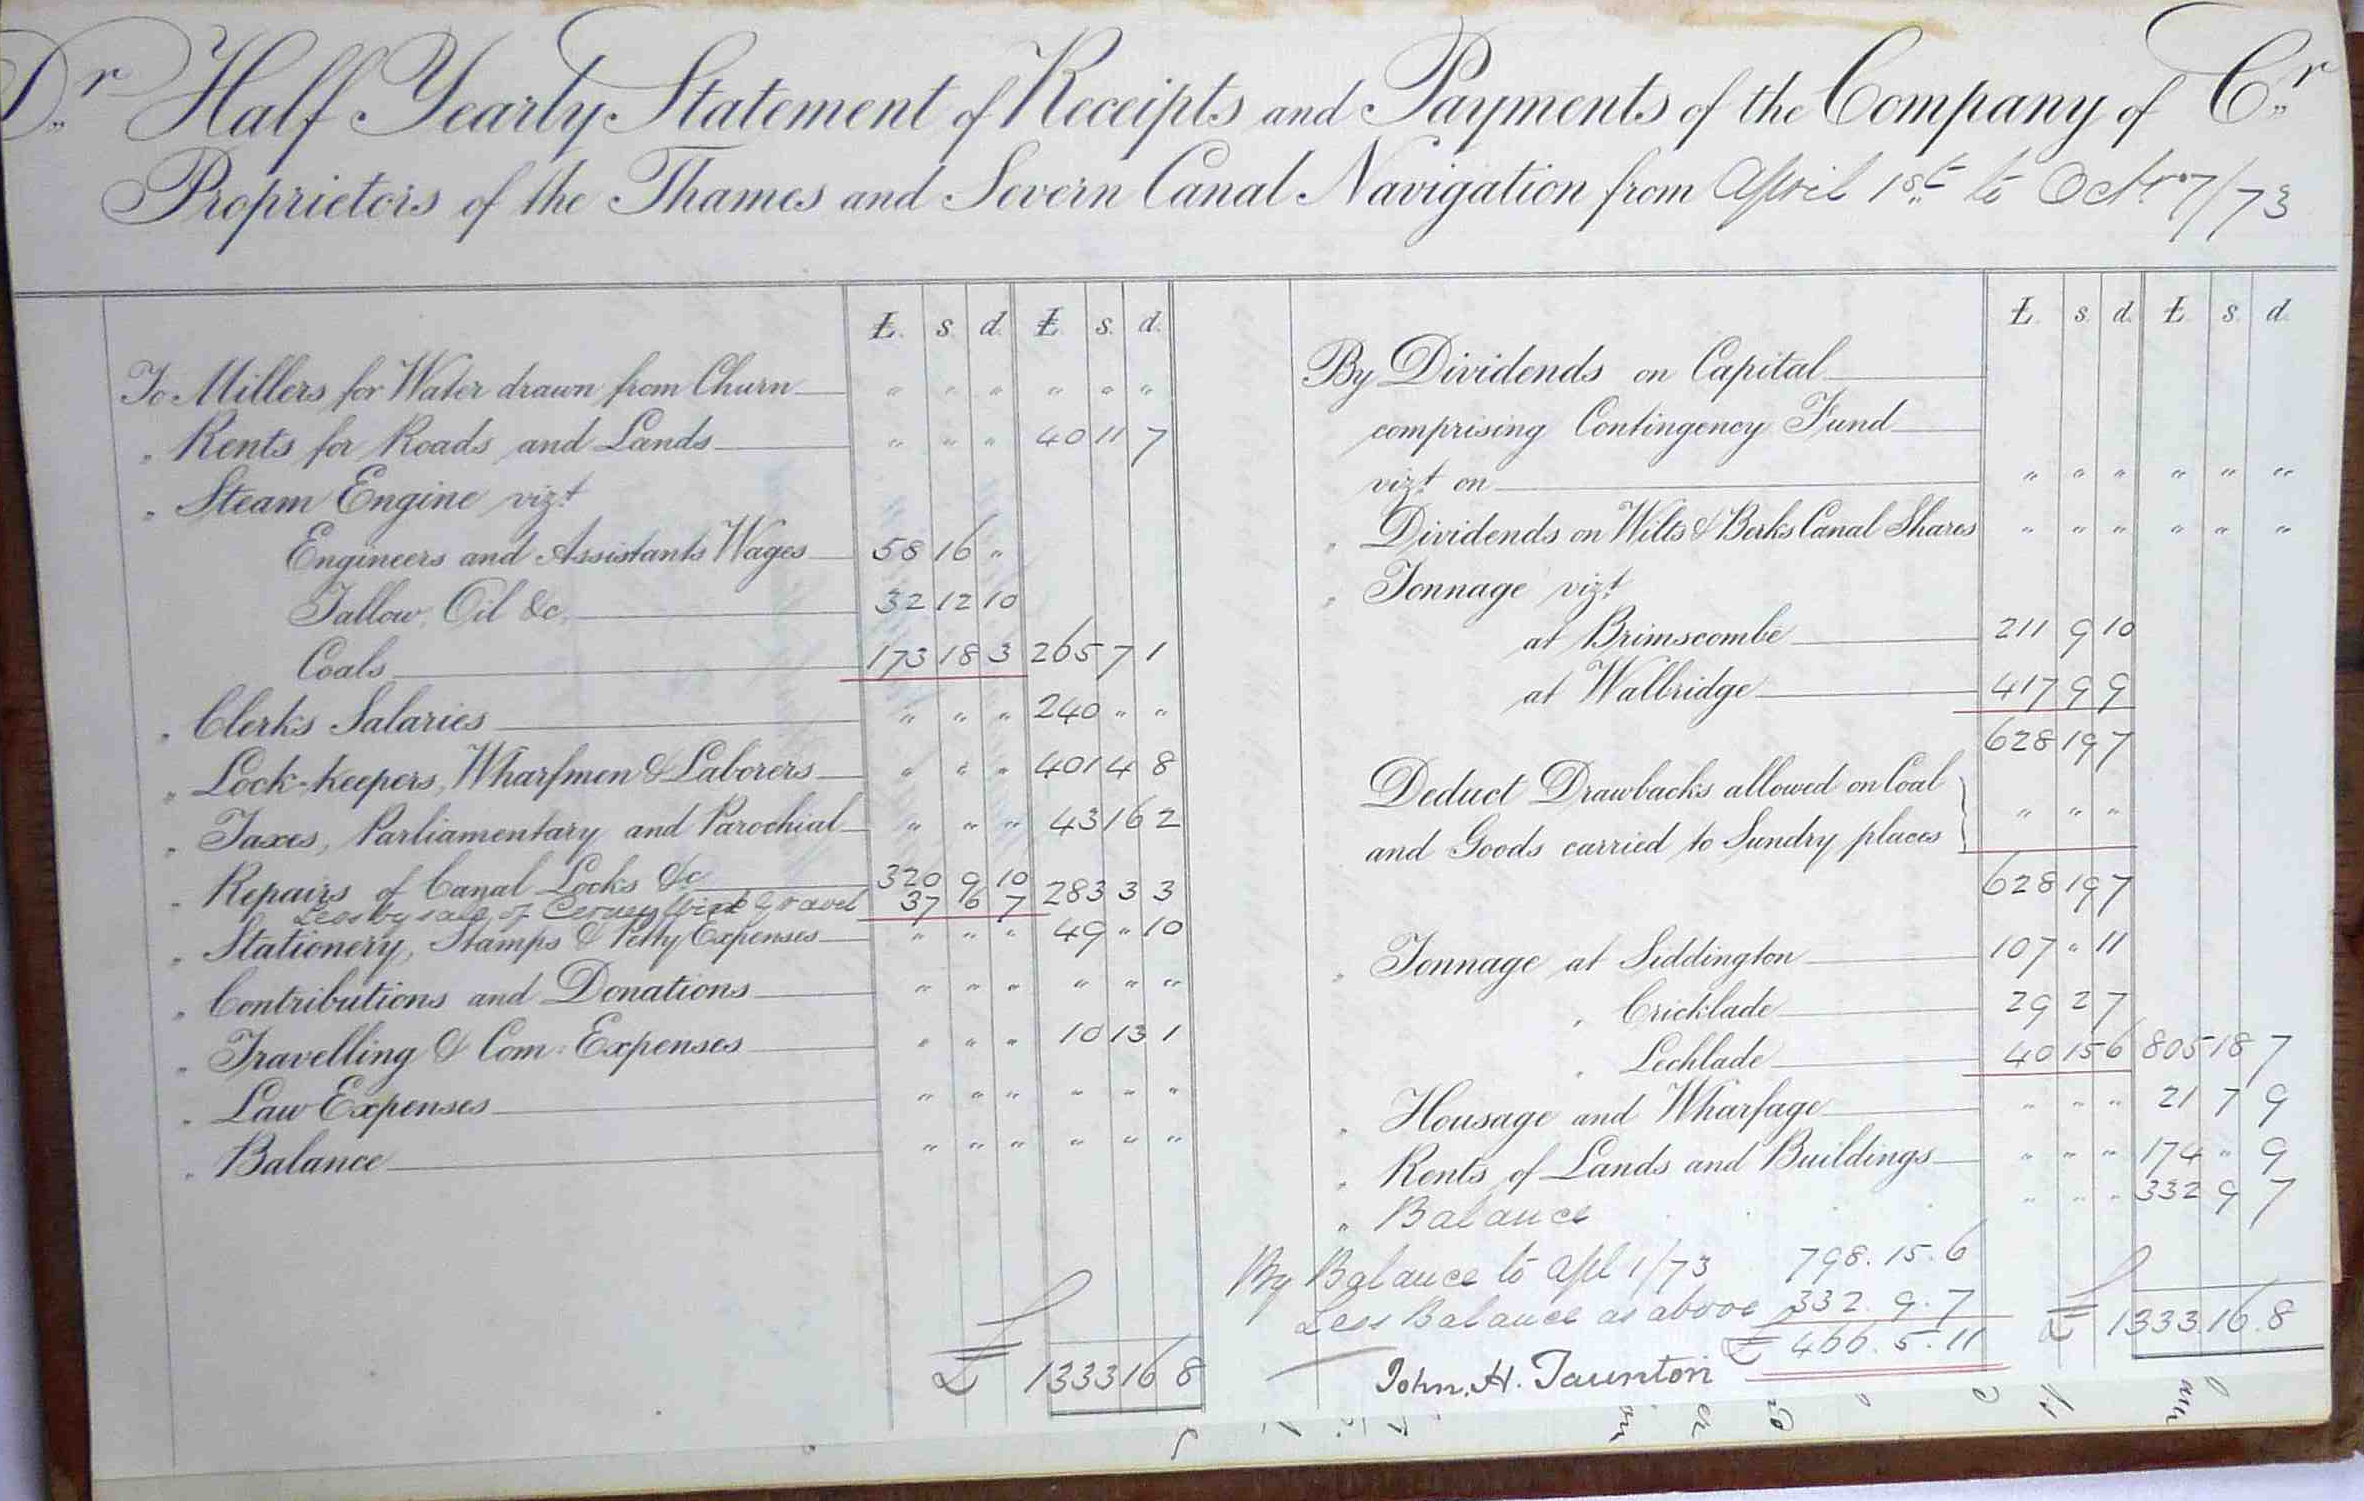 Dr Half Yearly Statement of Receipts and Payments of the Company of Cr
Proprietors of the Thames and Severn Canal Navigation from April 1st to Octr 7/73
£. s. d. £ s. d.
To Millers for Water drawn from Churn " " " " " "
" Rents for Roads and Lands " " " 40 11 7
" Steam Engine vizt
Engineers and Assistants Wages 58 16 "
Tallow, Oil &c. 32 12 10
Coals 173 18 3 265 7 1
" Clerks Salaries " " " 240 " "
" Lock-keepers, Wharfmen & Laborers " " " 401 4 8
" Taxes, Parliamentary and Parochial " " " 43 16 2
" Repairs of Canal Locks &c 320 9 10
Less by sale of Cerney Wick Gravel 37 6 7 283 3 3
" Stationery, Stamps & Petty Expenses " " " 49 " 10
" Contributions and Donations " " " " " "
" Travelling & Com: Expenses " " " 10 13 1
" Law Expenses " " " " " "
" Balance " " " " " "
£ 1333 16 8
£. s. d. £ s. d.
By Dividends on Capital
comprising Contingency Fund
vizt on " " " " " "
" Dividends on Wilts & Berks Canal Shares " " " " " "
" Tonnage vizt
at Brimscombe 211 9 10
at Wallbridge 417 9 9
628 19 7
Deduct Drawbacks allowed on Coal
and Goods carried to Sundry places " " "
628 19 7
" Tonnage at Siddington 107 " 11
" Cricklade 29 2 7
" Lechlade 40 15 6 805 18 7
" Housage and Wharfage " " " 21 7 9
" Rents of Lands and Buildings " " " 174 " 9
" Balance " " " 332 9 7
By Balance to Apl 1/73 798.15.6
Less Balance as above 332.9.7
£ 466.5.11
£ 1333.16.8
John. H. Taunton